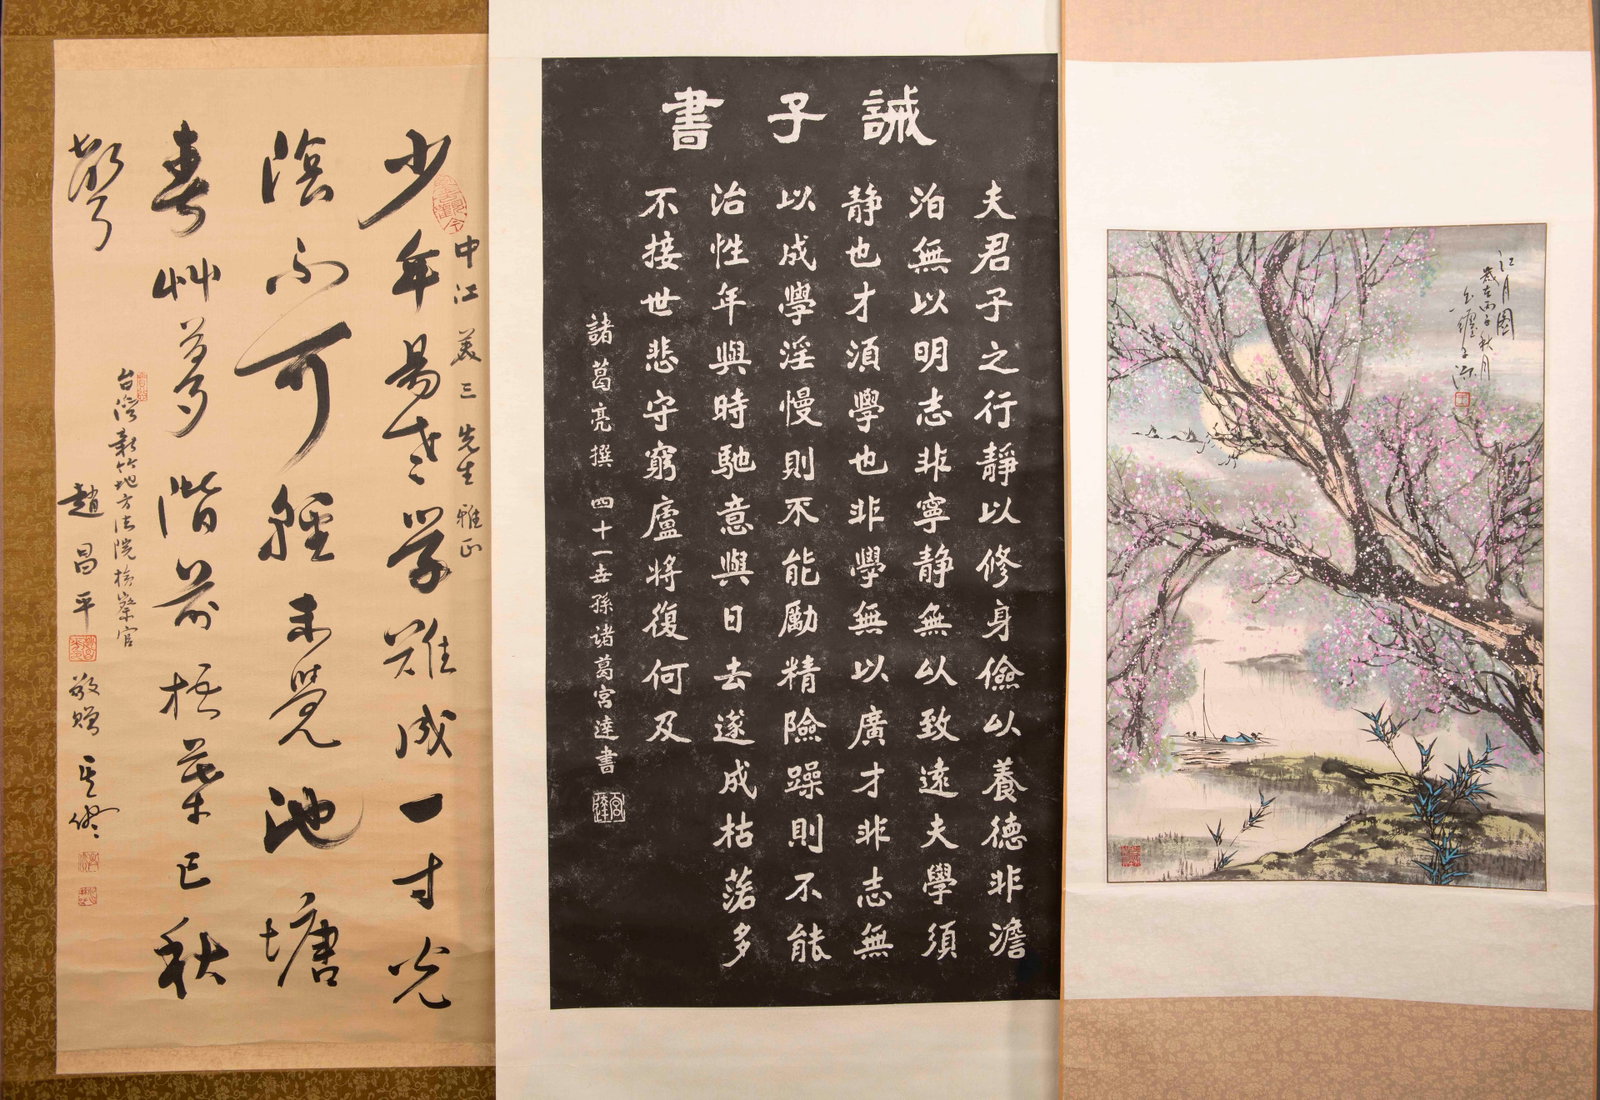 中江美三先生雅正
少年易老學難成一寸光
陰不可輕未覺池塘
春艸夢階前梧葉已秋
聲
台灣新竹地方法院檢察官
趙昌平敬贈
誡子書
夫君子之行靜以修身儉以養德非澹
泊無以明志非寧静無以致遠夫學須
静也才須學也非學無以廣才非志無
以成學淫慢則不能勵精險躁則不能
治性年與時馳意與日去遂成枯落多
不接世悲守窮廬將復何及
諸葛亮撰 四十一世孫诸葛宮達書
江月圖
歲在丙子秋月